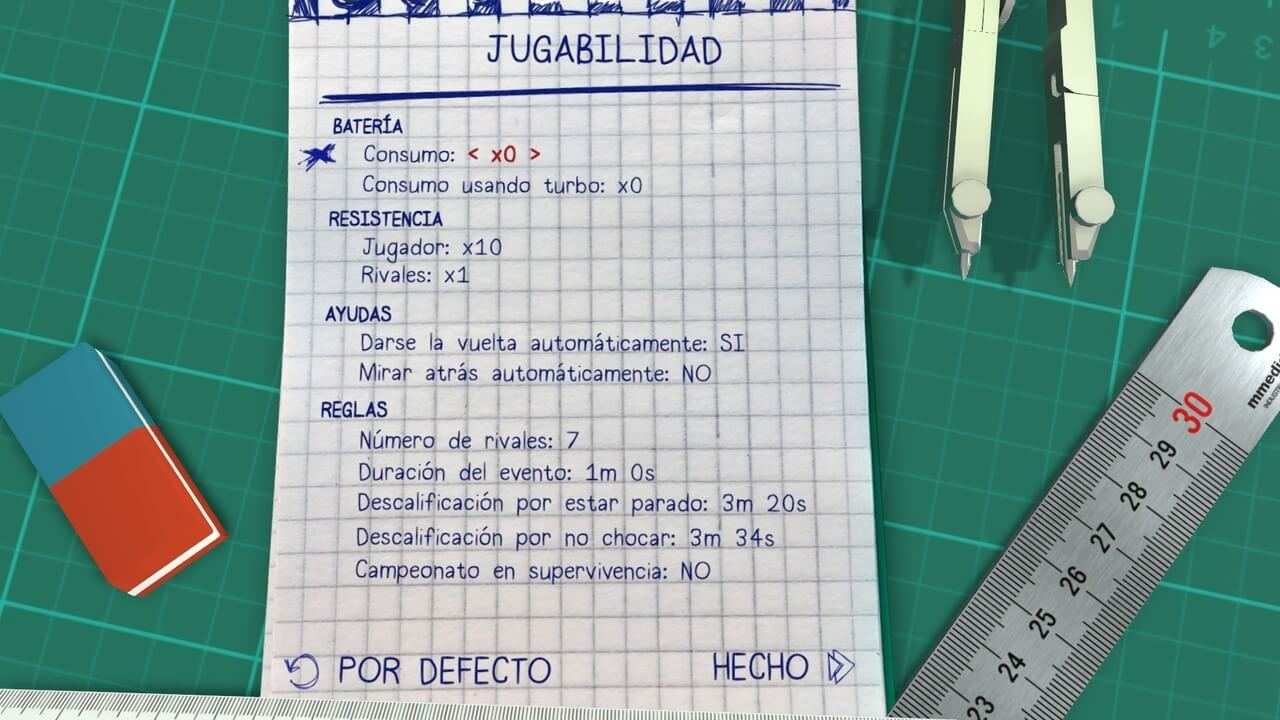 JUGABILIDAD
BATERÍA
Consumo: < x0 >
Consumo usando turbo: x0
RESISTENCIA
Jugador: x10
Rivales: x1
AYUDAS
Darse la vuelta automáticamente: SI
Mirar atrás automáticamente: NO
REGLAS
Número de rivales: 7
Duración del evento: 1m 0s
Descalificación por estar parado: 3m 20s
Descalificación por no chocar: 3m 34s
Campeonato en supervivencia: NO
POR DEFECTO
HECHO
30
29
28
27
26
25
24
23
1
4
3